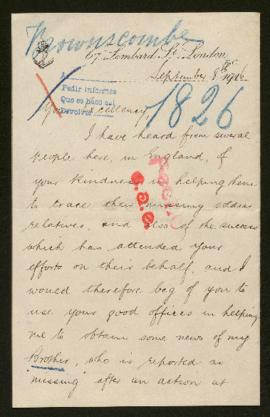 Brownscombe
67 Lombard St. London
September 8th 1916
Pedir informes
Que se haga así
Devolver
Your Excellency,
1826
I have heard from several
people here, in England, of
your kindness in helping them
to trace their missing soldier
relatives, and also of the success
which has attended your
efforts on their behalf, and I
would therefore beg of you to
use your good offices in helping
me to obtain some news of my
Brother, who is reported as
"missing" after an action at